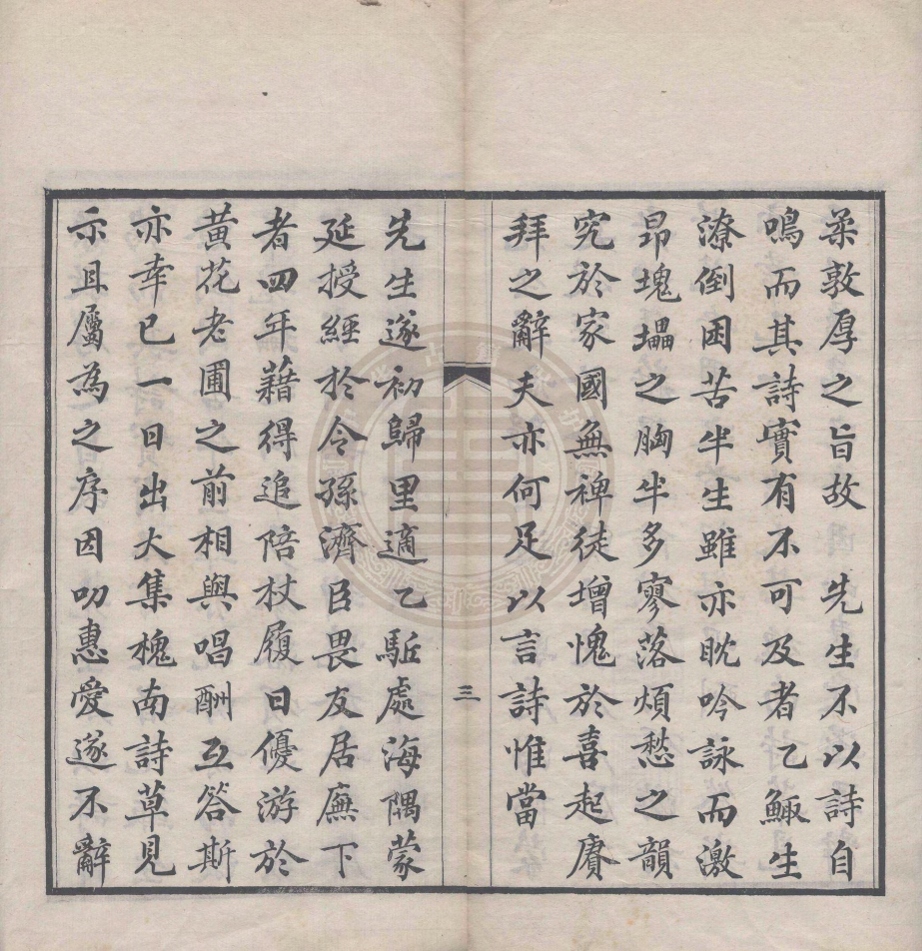 柔敦厚之旨故　先生不以詩自
鳴而其詩實有不可及者乙鯫生
潦倒困苦半生雖亦眈吟詠而激
昂塊壘之胸半多寥落煩愁之韻
究於家國無裨徒增愧於喜起賡
拜之辭夫亦何足以言詩惟當
三
先生遂初歸里適乙駈處海隅蒙
延授經於令孫濟臣畏友居廡下
者四年藉得追陪杖履日優游於
黃花老圃之前相與唱酬互答斯
亦幸已一日出大集槐南詩草見
示且屬為之序因叨惠愛遂不辭